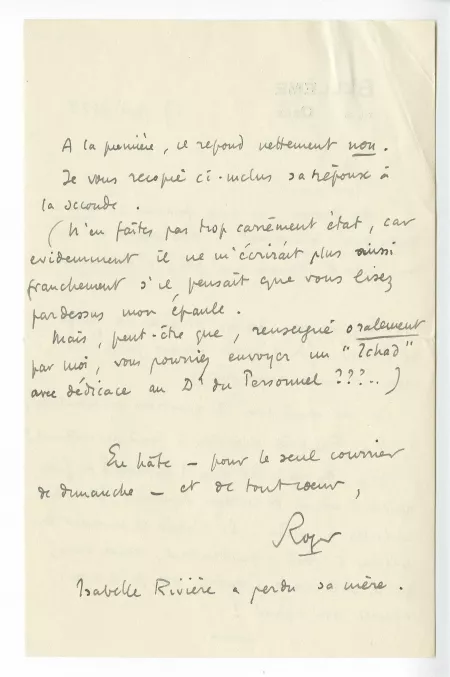 A la première, il répond nettement non.
Je vous recopie ci-inclus sa réponse à
la seconde.
(N'en faites pas trop carrément état, car
evidemment il ne m'écrirait plus aussi
franchement s'il pensait que vous lisez
pardessus mon épaule.
Mais, peut-être que, renseigné oralement
par moi, vous pourriez envoyer un "Tchad"
avec dédicace au Dr du Personnel ???..)
En hâte – pour le seul courrier
de dimanche – et de tout cœur,
Roger
Isabelle Rivière a perdu sa mère.